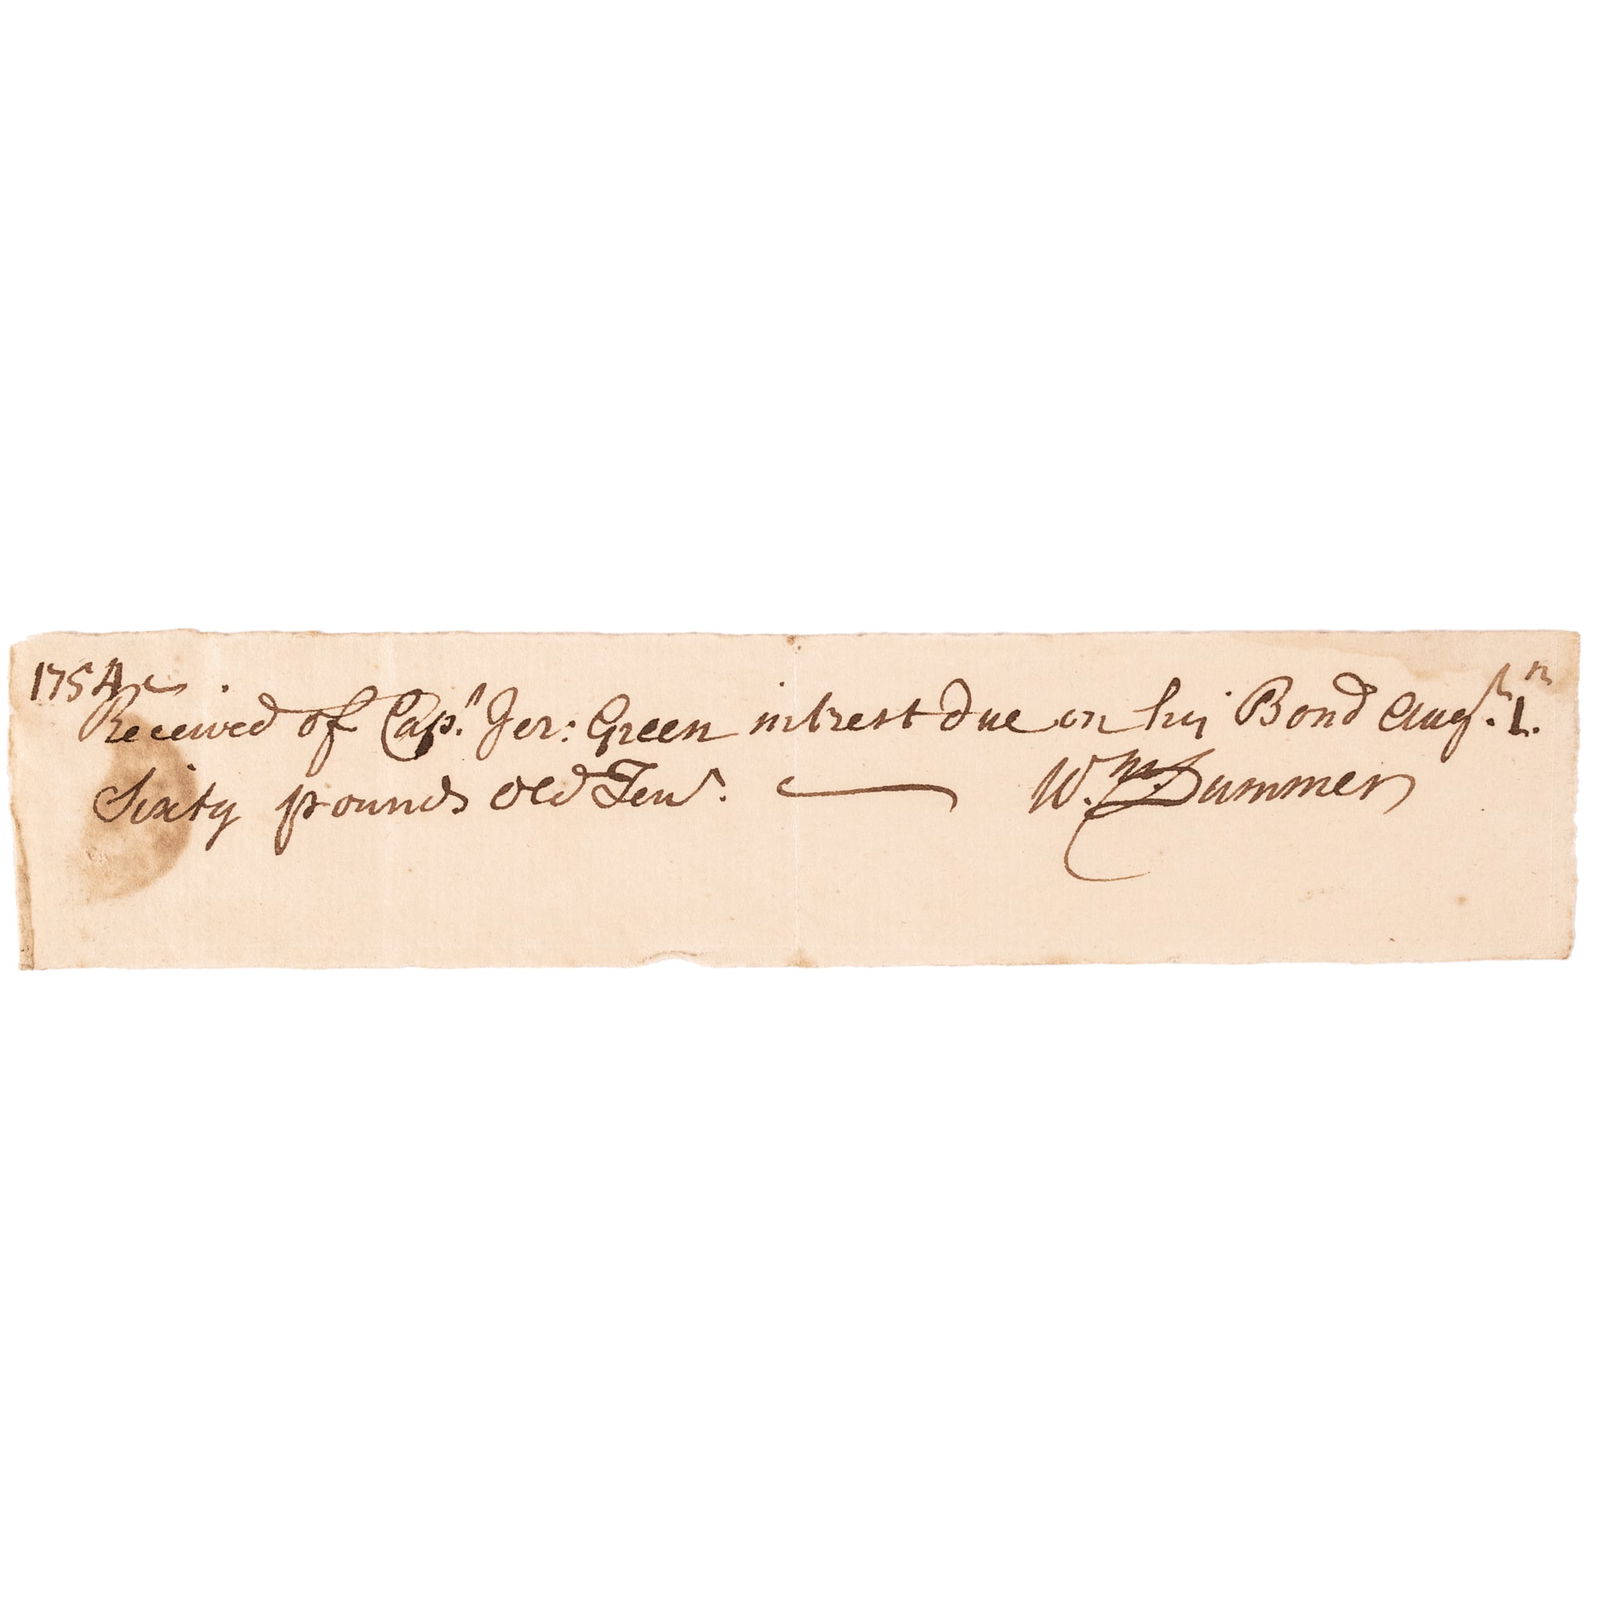 1754
Received of Capt. Jer: Green intrest due on his Bond Augst. 1.
Sixty pounds Old Tenr. Wm. Dummer